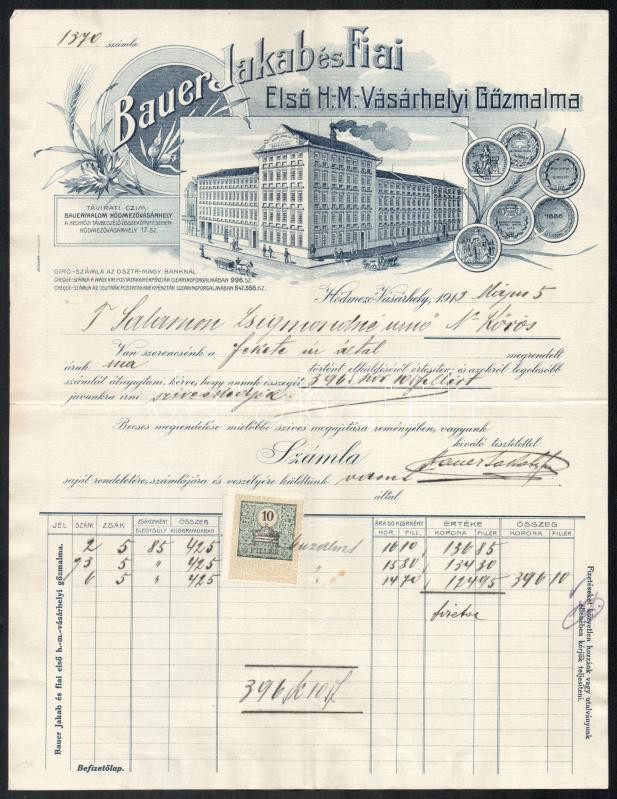 1370 számla
Bauer Jakab és Fiai
Első H.-M.-Vásárhelyi Gőzmalma
TÁVIRATI CZIM:
BAUERMALOM HÓDMEZŐVÁSÁRHELY
A HELYKÖZI TÁVBESZÉLŐ ÖSSZEKÖTTETÉSEKBEN
HÓDMEZŐVÁSÁRHELY 17. SZ.
1886
GIRO-SZÁMLA AZ OSZTR.-MAGY. BANKNÁL
CHEQUE-SZÁMLA A MAGY. KIR. POSTATAKARÉKPÉNZTÁR CLEARINGFORGALMÁBAN 996. SZ.
CHEQUE-SZÁMLA AZ OSZTRÁK POSTATAKARÉKPÉNZTÁR CLEARINGFORGALMÁBAN 847.366. SZ.
Hódmező-Vásárhely, 1913 Május 5
T. Salamon Zsigmondné urnő N. Kőrös
Van szerencsénk a fekete úr által megrendelt
áruk ma történt elküldéséről értesíteni és azokról legolcsóbb
számlát átnyujtani, kérve, hogy annak összegét 396 kor 10 fillért
javunkra írni sziveskedjék.
Becses megrendelése mielőbbi szíves megujítása reményében, vagyunk
kiváló tisztelettel
Számla
Bauer Jakab és fiai
saját rendeletére, számlájára és veszélyére küldtünk vasut
által
JEL SZÁM ZSÁK ZSÁKONKÉNT ELEGYSÚLY ÖSSZEG KILOGRAMOKBAN ÁRA 50 KLGRKÉNT KOR. FILL. ÉRTÉKE KORONA FILLÉR ÖSSZEG KORONA FILLÉR
10
FILLÉR
2 5 85 425 buzaliszt 16 10 136 85
3 5 " 425 " 15 80 134 30
6 5 " 425 14 70 124 95 396 10
fizetve
396 k 10 f
Bauer Jakab és fiai első h.-m.-vásárhelyi gőzmalma.
Fizetéseket közvetlen hozzánk vagy utalványunk
ellenében kérjük teljesíteni.
Befizetőlap.